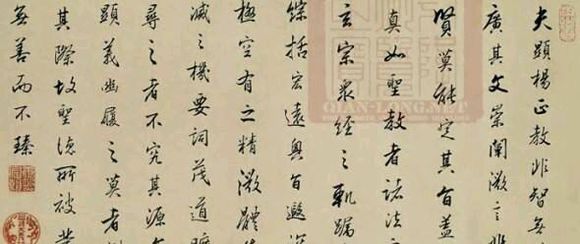 夫顯揚正教非智無
廣其文崇闡微言非
賢莫能定其旨蓋
真如聖教者諸法之
玄宗衆經之軌躅
綜括宏遠奧旨遐深
極空有之精微體生
滅之機要詞茂道曠
尋之者不究其源
顯義幽履之莫者
其際故聖慈所被業
無善而不臻
QIAN-LONG.NET